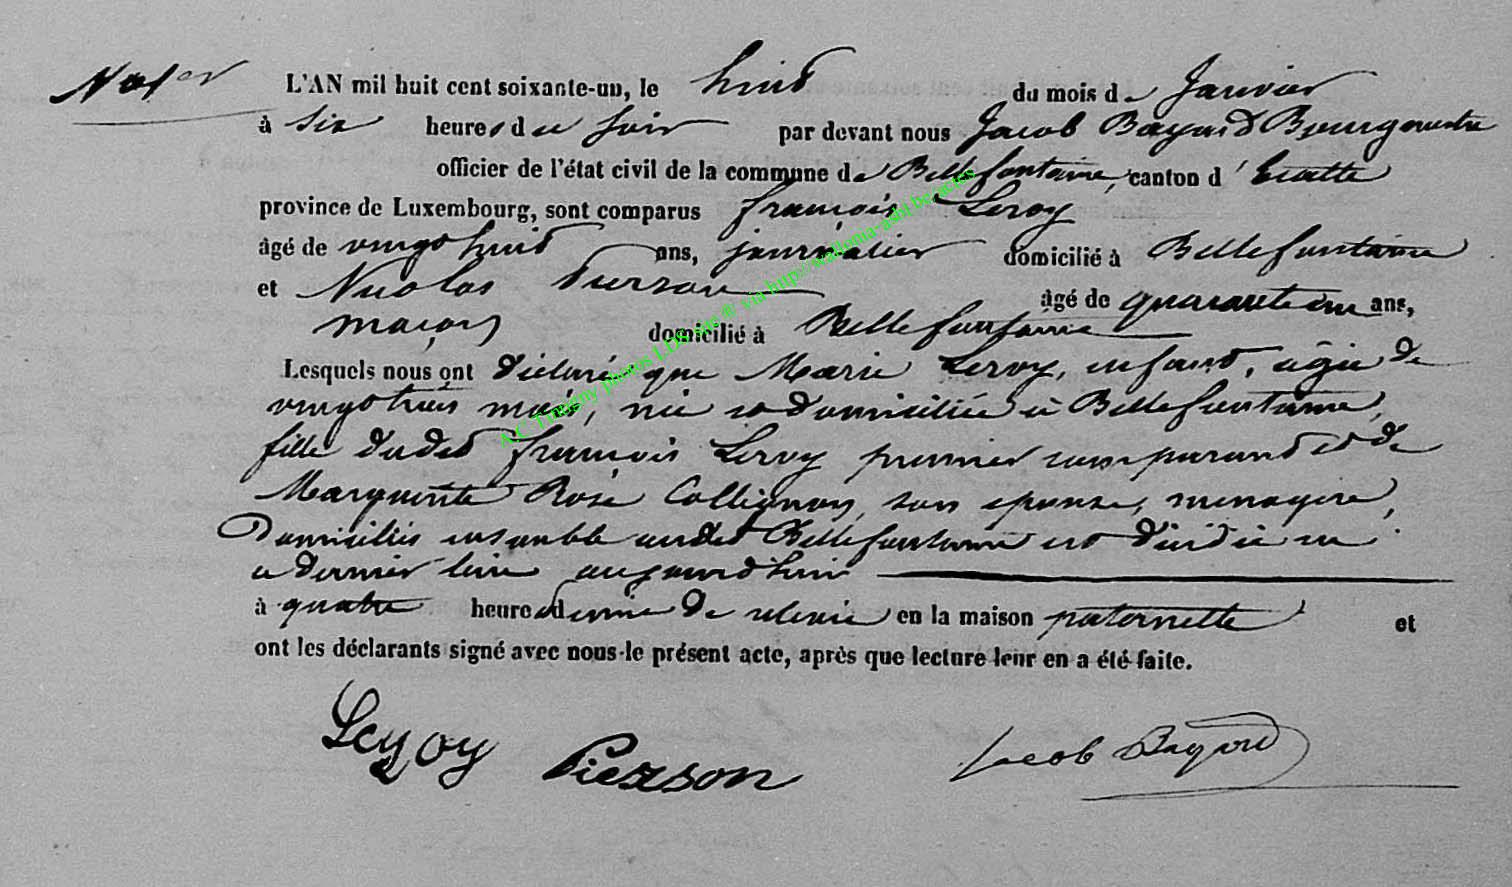 N° 1er
L'AN mil huit cent soixante-un, le huit du mois de Janvier
à six heures du soir par devant nous Jacob Bayard Bourgmestre
officier de l'état civil de la commune de Bellefontaine, canton d'Etalle
province de Luxembourg, sont comparus françois Leroy
âgé de vingt huit ans, journalier domicilié à Bellefontaine
et Nicolas Pierson âgé de quarante un ans,
maçon domicilié à Bellefontaine
Lesquels nous ont déclaré que Marie Leroy, enfant, âgée de
vingt trois mois, née et domiciliée à Bellefontaine,
fille dudit françois Leroy premier comparant et de
Marguerite Rose Collignon, son épouse, ménagère,
Domiciliés ensemble audit Bellefontaine est décédée en
ce dernier lieu aujourd'hui
à quatre heures demie de relevée en la maison paternelle et
ont les déclarants signé avec nous le présent acte, après que lecture leur en a été faite.
Leroy Pierson Jacob Bayard
A.C. Tintigny photos LDS sur ® via http://wallonia-asbl.be/actes